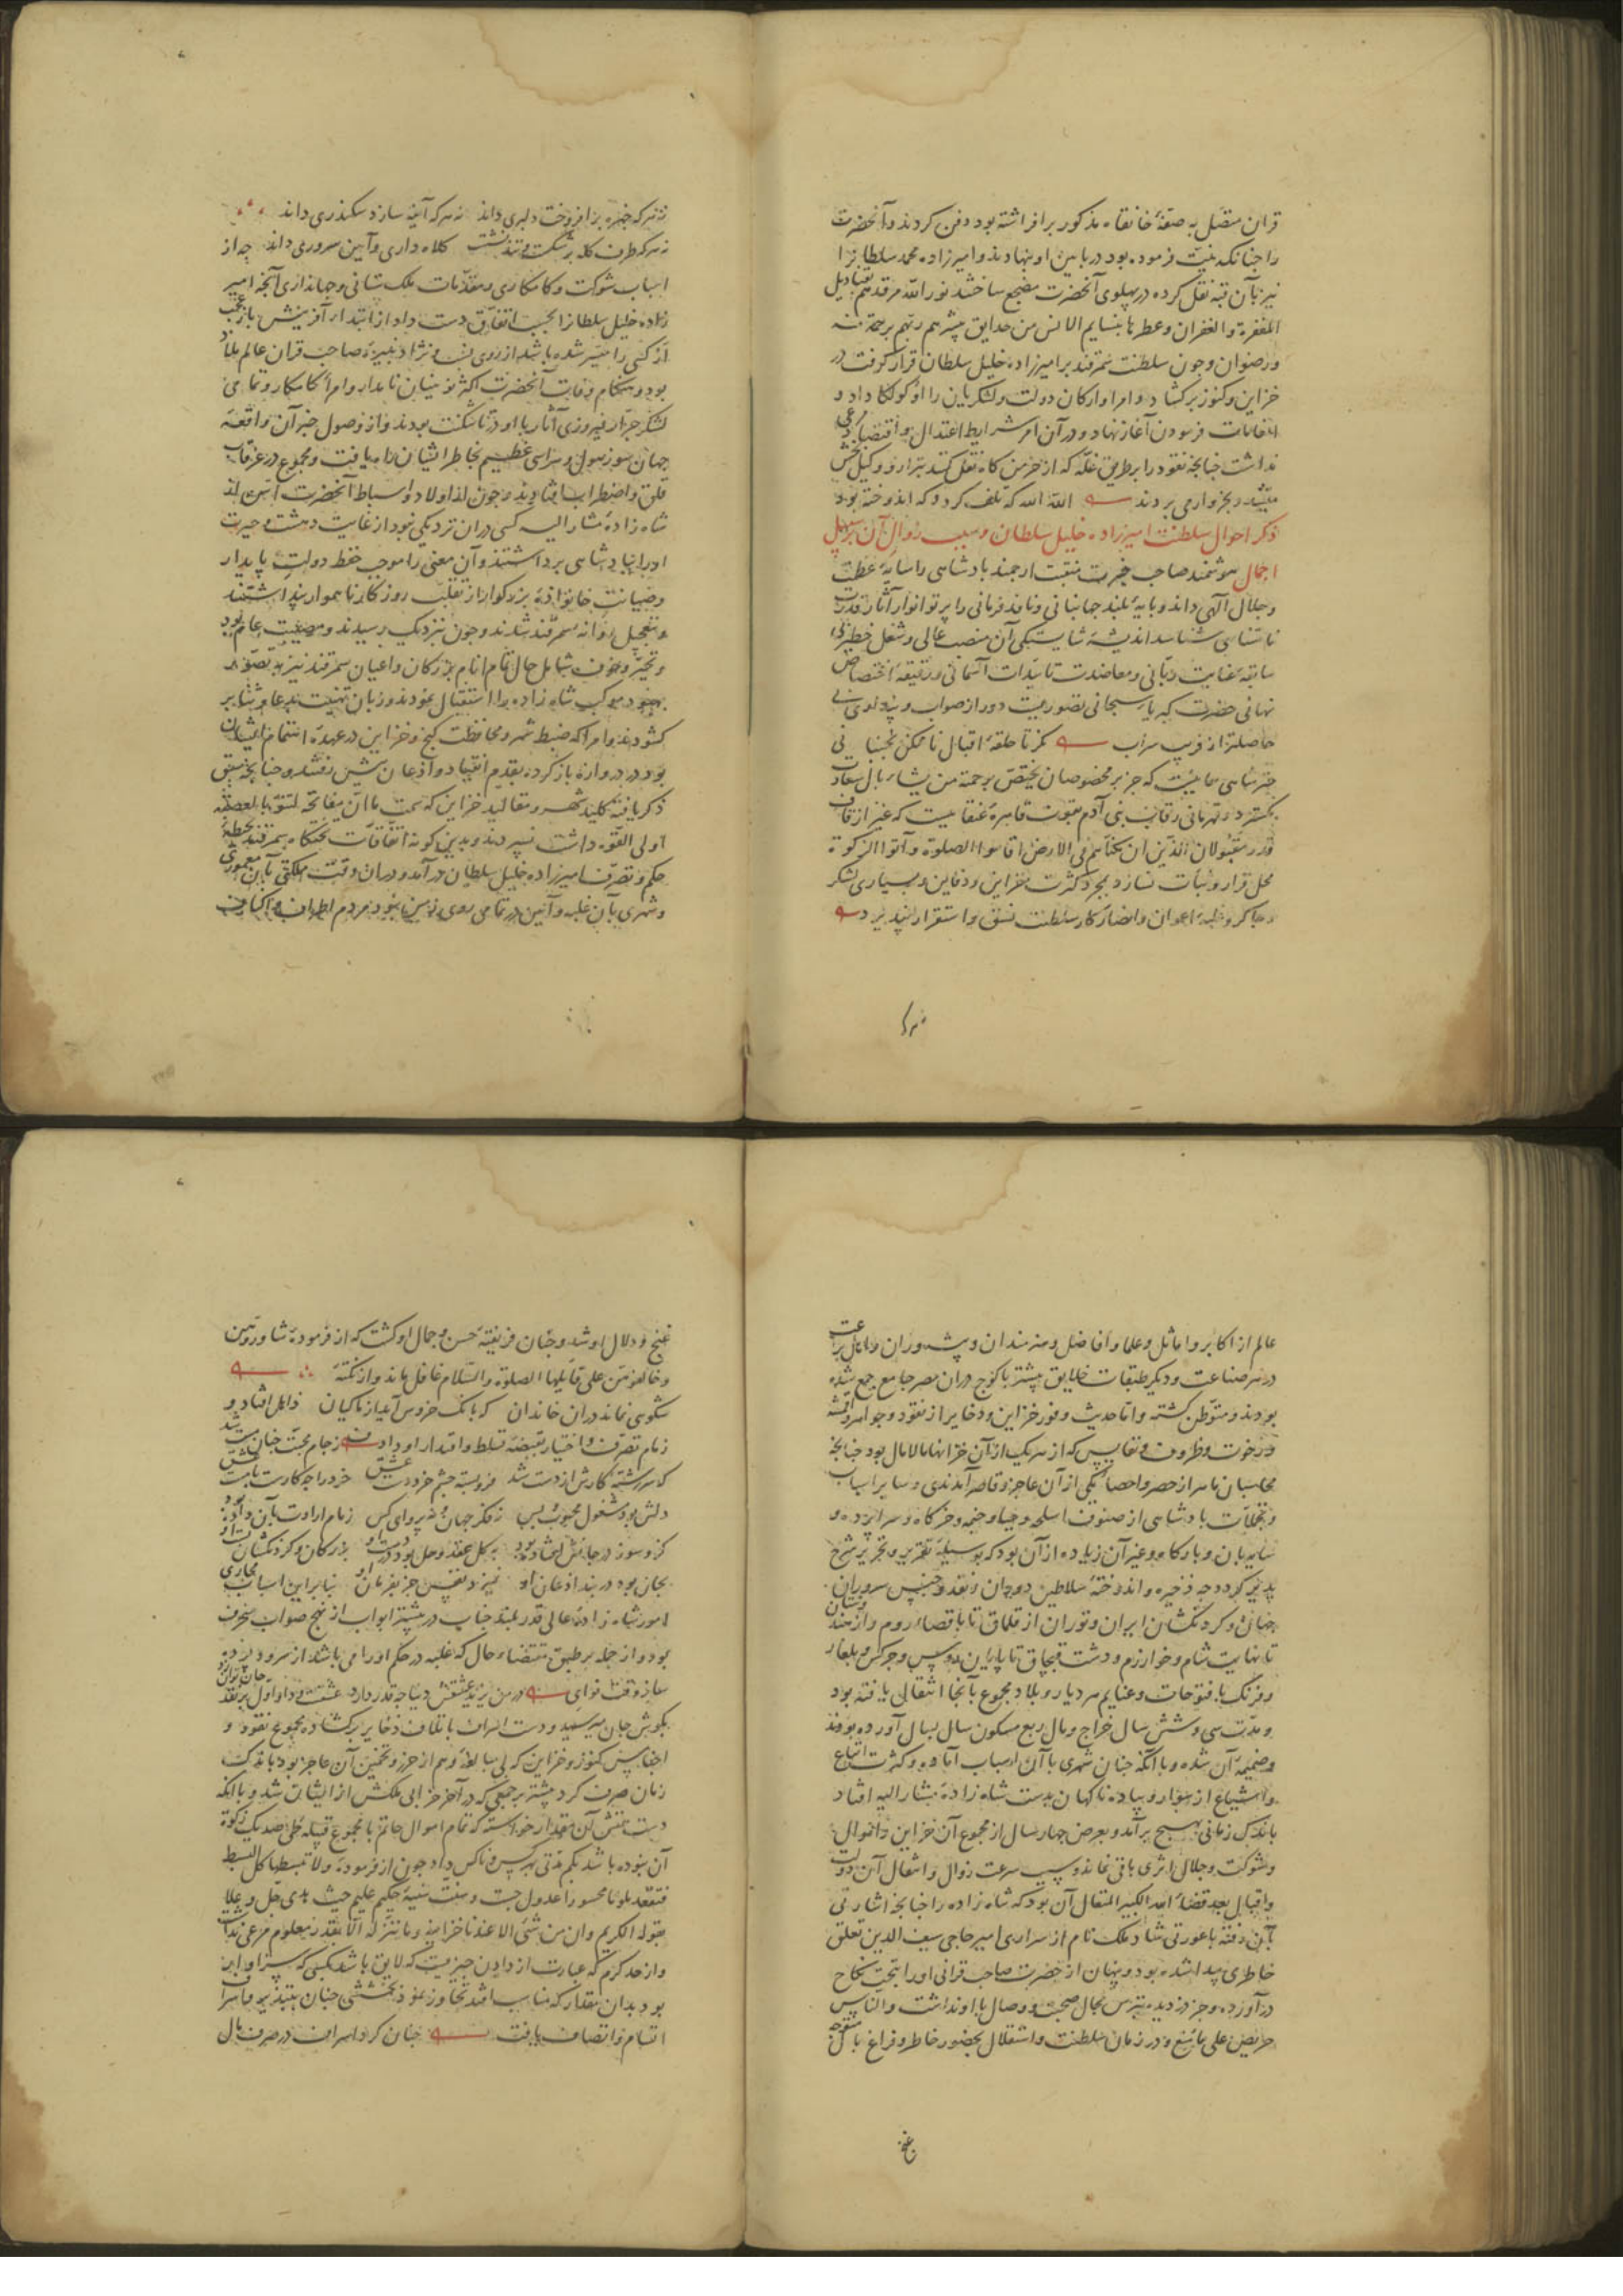 قران متصل به صفهٔ خانقاه مذکور برافراشته بود دفن کردند و آنحضرت
را چنانکه نیت فرموده بود در پایین او نهادند و امیرزاده محمد سلطان را
نیز بآن قبه نقل کرده در پهلوی آنحضرت مضجع ساختند نور الله مرقدهم بقنادیل
المغفرة والغفران وعطر بنسایم الانس من حدایق یبشرهم ربهم برحمة منه
ورضوان و چون سلطنت سمرقند بر امیرزاده خلیل سلطان قرار گرفت در
خزاین و کنوز برگشاد و امرا و ارکان دولت و لشکریان را اوکولکا داد و
انعامات فرمودن آغاز نهاد و در آن امر شرایط اعتدال و اقتصاد مرعی
نداشت چنانچه نقود را بطریق غله که از خرمن گاه نقل کنند بترازو و کیل بخش
میشد و بخروار می بردند الله الله که تلف کرد و که اندوخته بود
ذکر احوال سلطنت امیرزاده خلیل سلطان و سبب زوال آن بر سبیل
اجمال هوشمند صاحب خبرت منقبت ارجمند پادشاهی را سایهٔ عظمت
و جلال الهی داند و پایهٔ بلند جهانبانی و نافذ فرمانی را پرتو انوار آثار قدرت
نامتناهی شناسد اندیشهٔ شایستگی آن منصب عالی و شغل خطیر بی
سابقهٔ عنایت ربانی و معاضدت تاییدات آسمانی و دقیقهٔ اختصاص
نهانی حضرت کبریاء سبحانی تصوریست دور از صواب و پنداری بی
حاصلتر از فریب سراب کز تا حلقهٔ اقبال ناممکن نجنبانی
چتر شاهی همائیست که جز بر مخصوصان یختص برحمته من یشاء بال سعادت
نگسترد و قهرمانی رقاب بنی آدم بقوت قاهره عنقائیست که غیر از قاف
قدر مقبولان الذین ان مکناهم فی الارض اقاموا الصلوة وآتوا الزکوة
محل قرار و ثبات نسازد بمجرد کثرت خزاین و دفاین و بسیاری لشکر
و چاکر و غلبهٔ اعوان و انصار کار سلطنت نسق و استقرار نپذیرد
نه هر که چهره برافروخت دلبری داند نه هر که آینه سازد سکندری داند
نه هر که طرف کله بر شکست و تند نشست کلاه داری و آیین سروری داند چه از
اسباب شوکت و کامکاری و مقدمات ملک ستانی و جهانداری آنچه امیر
زاده خلیل سلطان را بحسب اتفاق دست داد از ابتداء آفرینش باز عجب
ار کسی را میسر شده باشد از روی نسب و نژاد نبیرهٔ صاحب قران عالم ملاذ
بود و هنگام وفات آنحضرت اکثر نوئینان نامدار و امراء کامکار و تمامی
لشکر جرار فیروزی آثار با او در تاشکنت بودند و از وصول خبر آن واقعهٔ
جهان سوز هول و هراسی عظیم بخاطر ایشان راه یافت و مجموع در غرقاب
قلق و اضطراب افتادند و چون از اولاد و اسباط آنحضرت
شاه زادهٔ مشار الیه کسی در آن نزدیکی نبود از غایت دهشت و حیرت
او را بپادشاهی برداشتند و آن معنی را موجب حفظ دولت پایدار
و صیانت خانوادهٔ بزرگوار از تقلب روزگار ناهموار پنداشتند
و بتعجیل روانه سمرقند شدند و چون نزدیک رسیدند و مصیبت عام بود
و تحیر و خوف شامل حال تمام انام بزرکان و اعیان سمرقند نیز به تصور
بهبود موکب شاه زاده را استقبال نمودند و زبان تهنیت بدعا و ثنا بر
گشودند و امرا که ضبط شهر و محافظت گنج و خزاین در عهدهٔ اهتمام ایشان
بود در دروازه باز کرده بقدم انقیاد و اذعان پیش رفتند و چنانچه سبق
ذکر یافته کلید شهر و مقالید خزاین که سمت ما ان مفاتحه لتنوء بالعصبة
اولی القوة داشت بسپردند و بدین گونه اتفاقات تختگاه سمرقند بحیطهٔ
حکم و تصرف امیرزاده خلیل سلطان در آمد و در آن وقت مملکتی بآن معموری
و شهری بآن غلبه و آیین در تمامی روی زمین نبود مردم اطراف و اکناف
عالم از اکابر و اماثل و علما و افاضل و هنرمندان و پیشه وران
در هر صناعت و دیگر طبقات خلایق بیشتر با کوچ در آن مصر جامع جمع شده
بودند و متوطن گشته و اما حدیث وفور خزاین و ذخایر از نقود و جواهر و اقمشه
و رخوت و ظروف و نفایس که از هر یک از آن خزانها مالامال بود چنانچه
محاسبان ماهر از حصر و احصاء یکی از آن عاجز و قاصر آمدندی و سایر اسباب
و تجملات پادشاهی از صنوف اسلحه و جیبا و خیمه و خرگاه و سراپرده و
سایه بان و بارگاه و غیر آن زیاده از آن بود که بوسیلهٔ تقریر و تحریر شرح
پذیر گردد چه ذخیره و اندوختهٔ سلاطین دوران و نقد و جنس سروران
جهان و گردنکشان ایران و توران از قلماق تا باقصاء روم و از هندوستان
تا نهایت شام و خوارزم و دشت قبچاق تا روس و چرکس و بلغار
و فرنک با فتوحات و غنایم هر دیار و بلاد مجموع بآنجا انتقال یافته بود
و مدت سی و شش سال خراج و مال ربع مسکون سال بسال آورده بودند
و ضمیمهٔ آن شده و با آنکه چنان شهری با آن اسباب آماده و کثرت اتباع
و اشیاع از سوار و پیاده ناگهان بدست شاه زادهٔ مشار الیه افتاد
باندک زمانی بهیچ بر آمد و بعرض چهار سال از مجموع آن خزاین و اموال
و شوکت و جلال اثری باقی نماند و سبب سرعت زوال و انتقال آن دولت
و اقبال بعد قضاء الله الکبیر المتعال آن بود که شاه زاده را چنانچه اشارتی
بآن رفته با عورتی شاد ملک نام از سراری امیر حاجی سیف الدین تعلق
خاطری پیدا شده بود و پنهان از حضرت صاحب قرانی او را بتحت نکاح
در آورده و جز دزدیده بترس مجال صحبت و وصال با او نداشت والناس
حریص علی ما منع و در زمان سلطنت و استقلال بحضور خاطر و فراغ بال
غنج
غنج و دلال او شد و چنان فریفتهٔ حسن و جمال او گشت که از فرمودهٔ شاوروهن
و خالفوهن علی قایلها الصلوة والسلام غافل ماند و از نکتهٔ
شکوهی نماند در آن خاندان که بانک خروس آید از ماکیان ذاهل افتاد و
زمام تصرف و اختیار بقبضهٔ تسلط و اقتدار او داد ز جام محبت چنان مست شد
که سررشتهٔ کارش از دست شد فرو بسته چشم خرد دست عشق
دلش بود مشغول محبوب بس نه فکر جهان و نه پروای کس زمام ارادت بآن داده
بجان بود در بند اذعان او نیزد نفس جز بفرمان او بنابراین اسباب مجاری
امور شاه زادهٔ عالی قدر بلند جناب در بیشتر ابواب از نهج صواب منحرف
بود و از جمله بر طبق مقتضاء حال که غلبه در حکم او را می باشد از سرود
در من یزید عشقش دنیا چه قدر دارد
بگوش جان میرسید و دست اسراف باتلاف ذخایر برگشاده مجموع نقود و
اجناس کنوز و خزاین که بی مبالغه وهم از حرز و تخمین آن عاجز بود باندک
زمان صرف کرد بیشتر بر جمعی که در آخر خرابی ملکش از ایشان شد و با آنکه
آن نبوده باشد بکم مدتی بهر کس و ناکس داد چون از فرمودهٔ ولا تبسطها کل البسط
فتقعد ملوما محسورا عدول جست و سنت سنیهٔ حکیم علیم حیث یدی جل و علا
بقوله الکریم وان من شئ الا عندنا خزاینه وما ننزله الا بقدر معلوم مرعی نداشت
و از حد کرم که عبارت از دادن چیزیست که لایق باشد بکسی که سزاوار
بود بدان مقدار که مناسب افتد تجاوز نمود بخششی چنان بتبذیر و اسراف
اتسام و اتصاف یافت چنان کرد اسراف در صرف مال